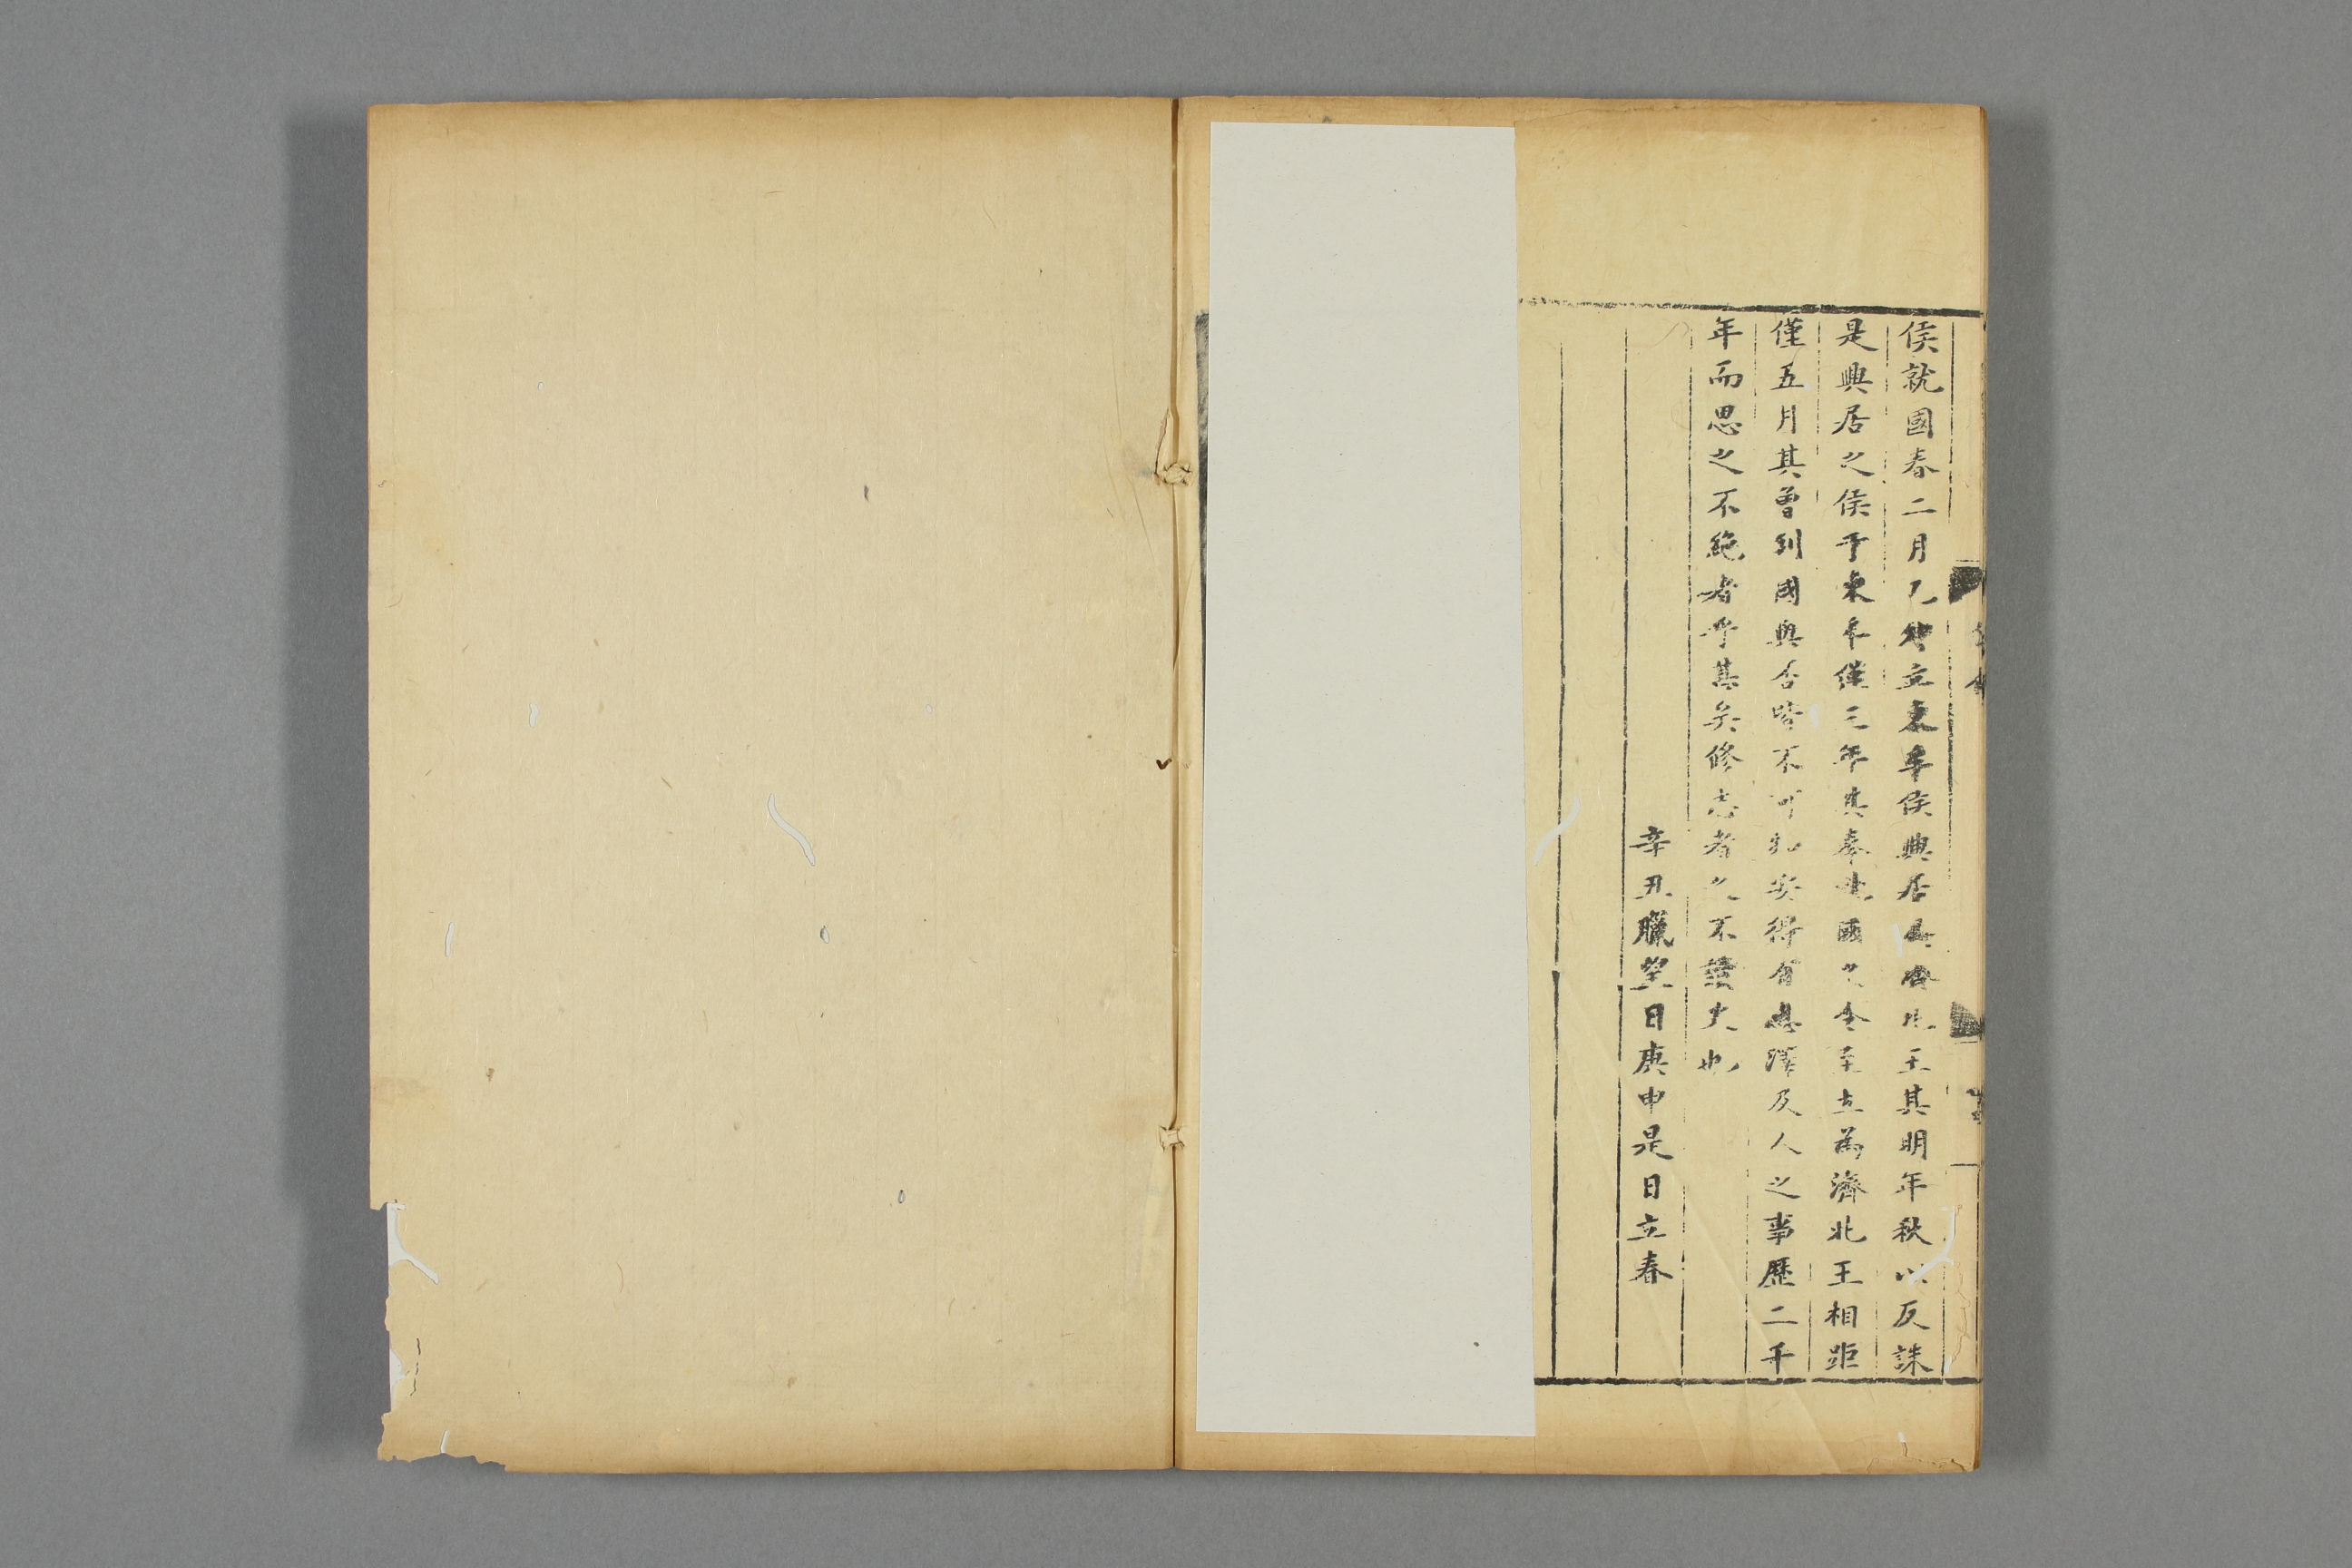 侯就國春二月乙卯立東牟侯興居為濟北王其明年秋以反誅
是興居之侯于東牟僅三年其奉就國之令至立為濟北王相距
僅五月其曾到國與否皆不可知安得有惠澤及人之事歷二千
年而思之不絕者乎甚矣修志者之不讀史也
辛丑臘望日庚申是日立春